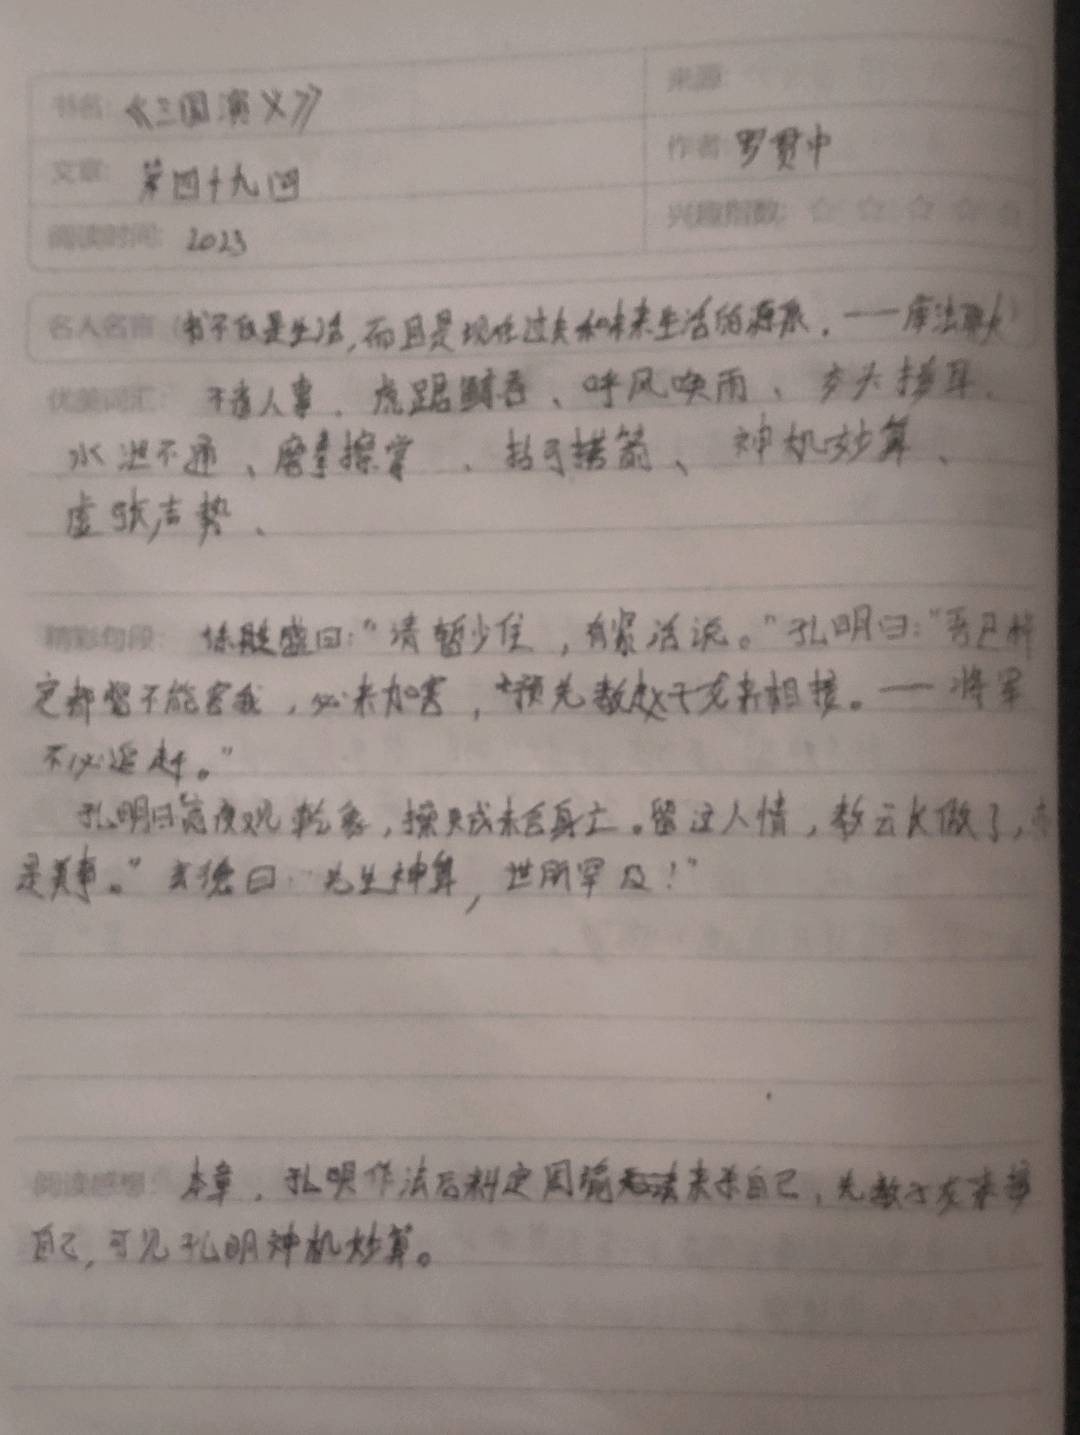 书名：《三国演义》 来源
文章：第四十九回 作者 罗贯中
阅读时间：2023 兴趣指数：☆ ☆ ☆ ☆ ☆
名人名言（书不仅是生活，而且是现在过去和未来生活的源泉．——库法耶夫）
优美词汇：不省人事、虎踞鲸吞、呼风唤雨、交头接耳、
水泄不通、磨拳擦掌、拈弓搭箭、神机妙算、
虚张声势、
精彩句段：徐盛曰："请暂少住，有紧话说。"孔明曰："吾已料
定都督不能容我，必来加害，预先教赵子龙来相接。——将军
不必追赶。"
孔明曰"亮夜观乾象，操贼未合身亡。留这人情，教云长做了，亦
是美事。"玄德曰："先生神算，世所罕及！"
阅读感想：本章，孔明作法后料定周瑜来杀自己，先教子龙来接
自己，可见孔明神机妙算。